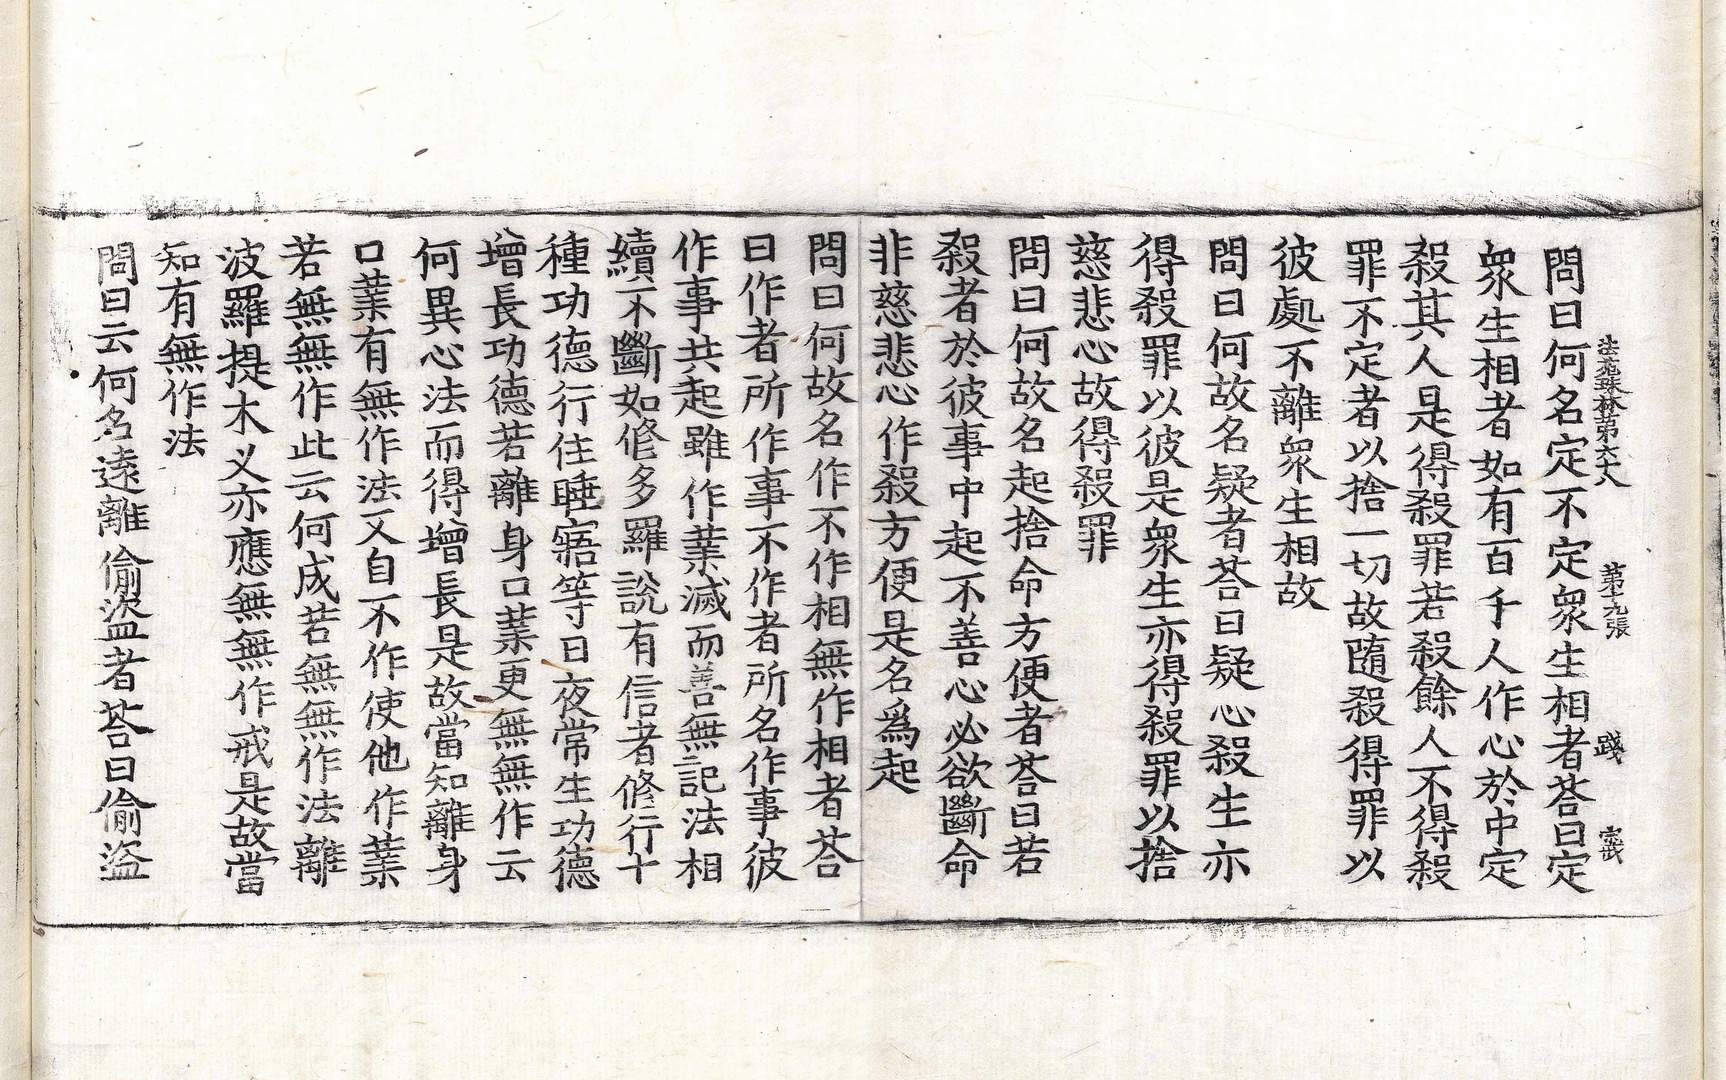 法苑珠林第六六 第十九張 踐
問曰何名定不定衆生相者荅曰定
衆生相者如有百千人作心於中定
殺其人是得殺罪若殺餘人不得殺
罪不定者以捨一切故隨殺得罪以
彼處不離衆生相故
問曰何故名疑者荅曰疑心殺生亦
得殺罪以彼是衆生亦得殺罪以捨
慈悲心故得殺罪
問曰何故名起捨命方便者荅曰若
殺者於彼事中起不善心必欲斷命
非慈悲心作殺方便是名爲起
問曰何故名作不作相無作相者荅
曰作者所作事不作者所名作事彼
作事共起雖作業滅而善無記法相
續不斷如修多羅說有信者修行十
種功德行住睡寤等日夜常生功德
增長功德若離身口業更無無作云
何異心法而得增長是故當知離身
口業有無作法又自不作使他作業
若無無作此云何成若無無作法離
波羅提木义亦應無無作戒是故當
知有無作法
問曰云何名遠離偷盜者荅曰偷盜